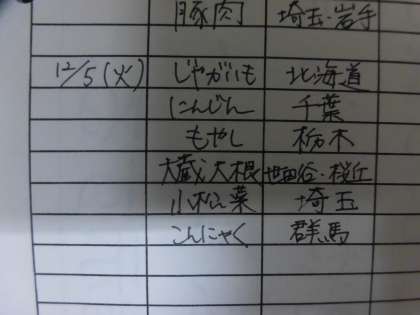 豚肉 埼玉・岩手
12/5(火) じゃがいも 北海道
にんじん 千葉
もやし 栃木
大蔵大根 世田谷・桜丘
小松菜 埼玉
こんにゃく 群馬